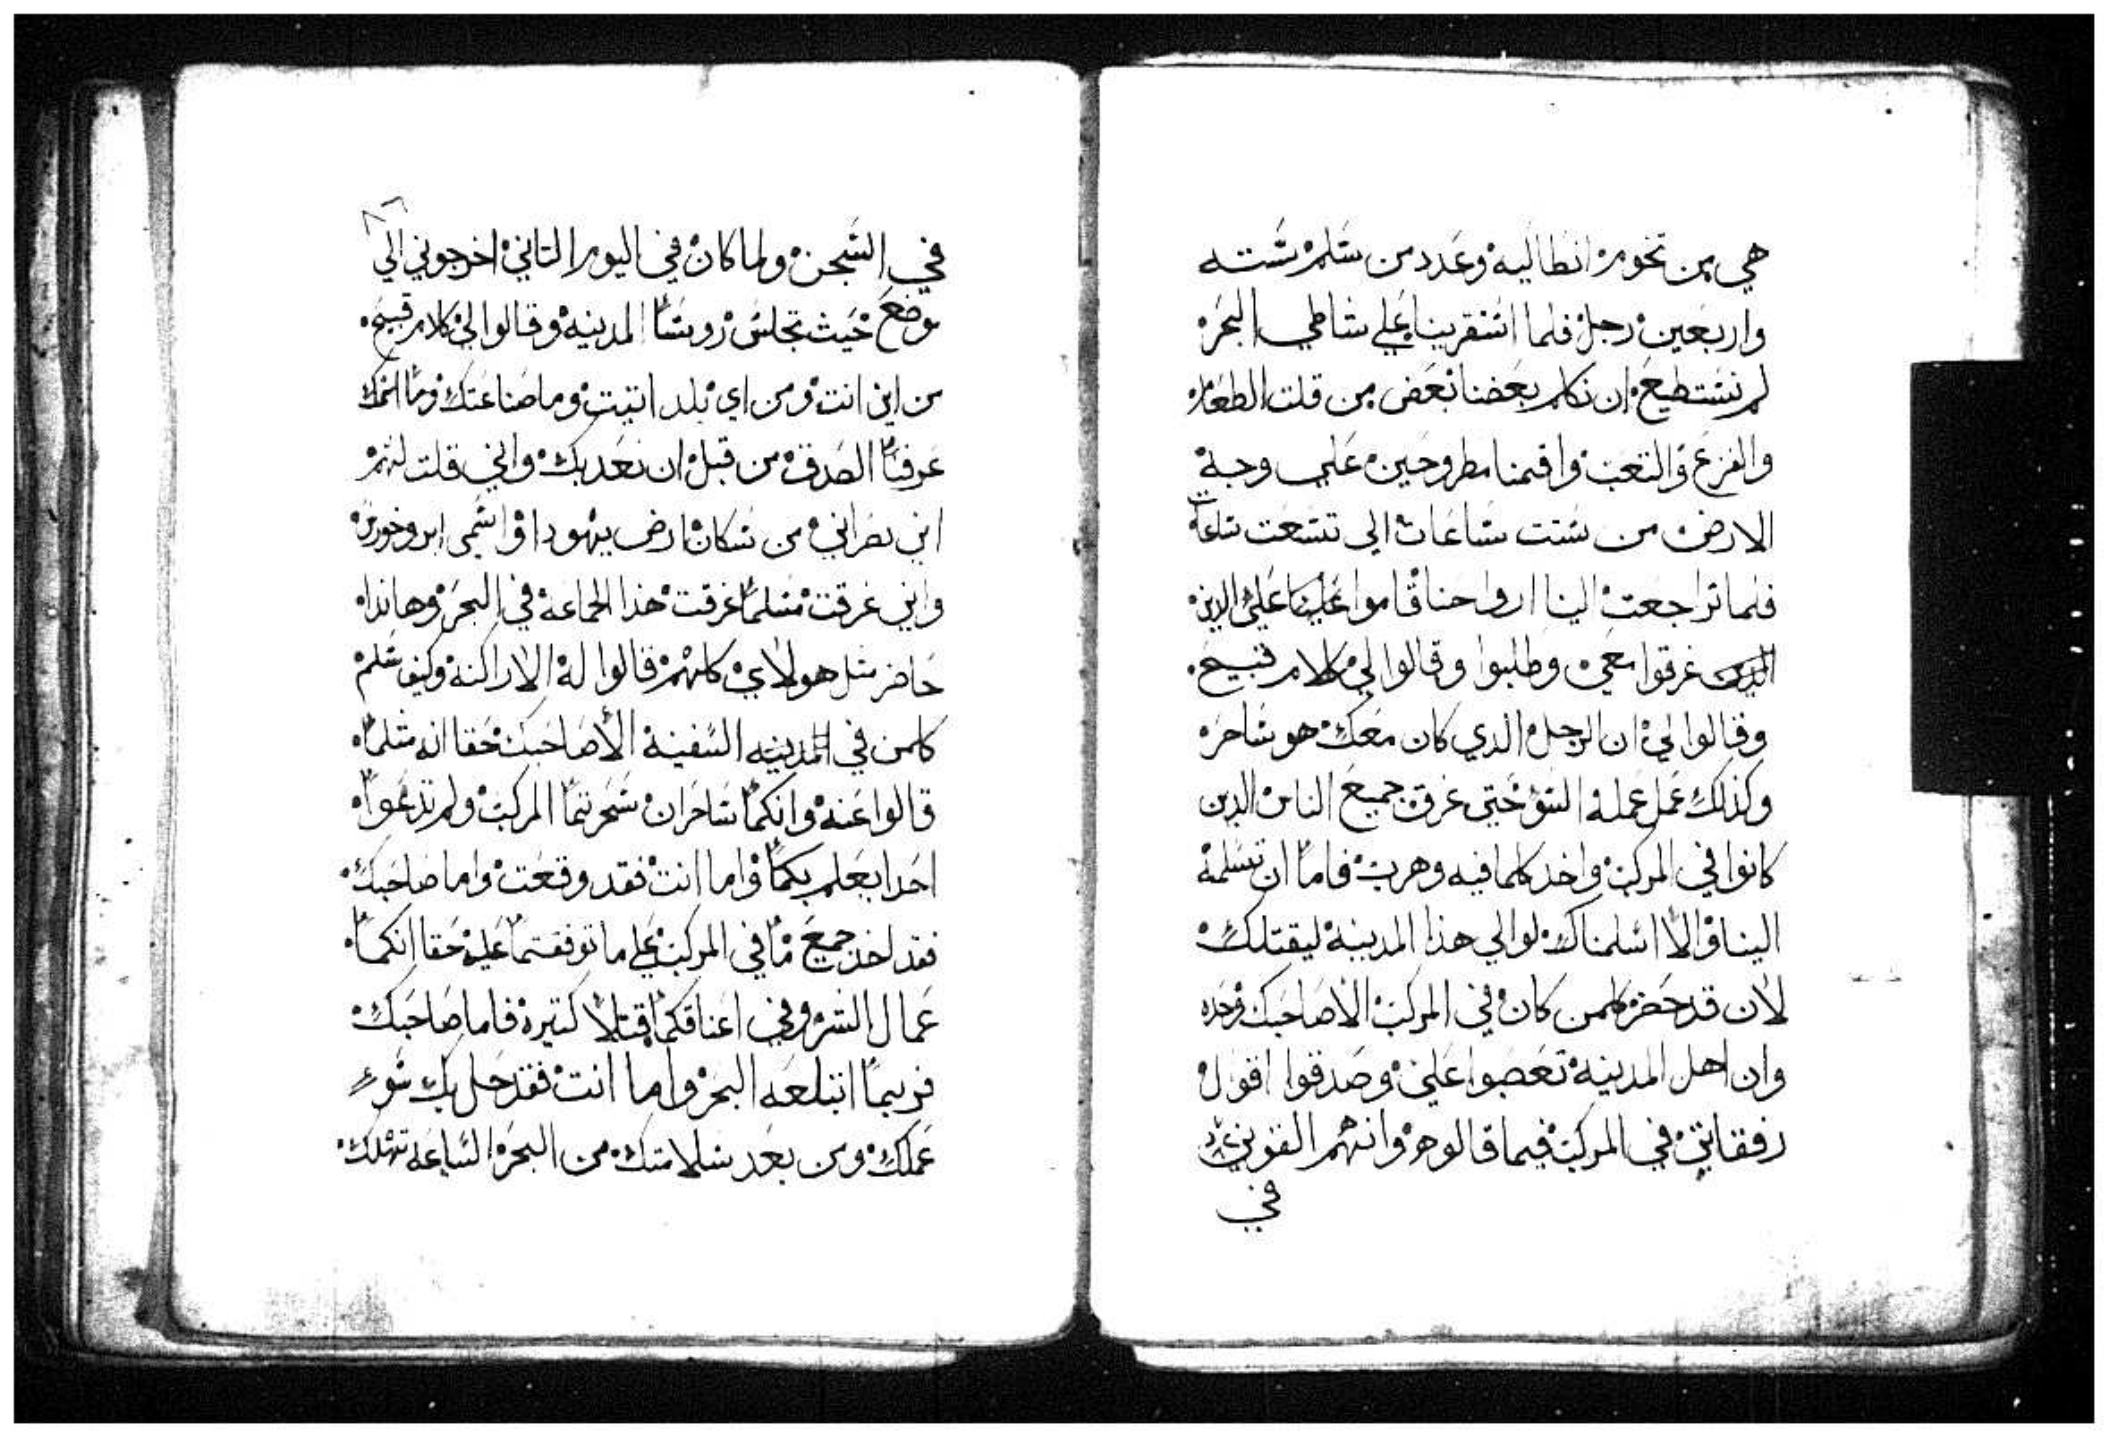 هي من تخوم انطاليه وعدد من سلم سته
واربعين رجل فلما استقرينا علي شاطي البحر
لم نستطيع ان نكلم بعضنا بعض من قلت الطعام
والفزع والتعب واقمنا مطروحين علي وجه
الارض من ستت ساعات الي تسعت ساعات
فلما تراجعت الينا ارواحنا قاموا علينا علي الذين
غرقوا معي وطلبوا وقالوا لي كلام قبيح
وقالوا لي ان الرجل الدي كان معك هو ساحر
وكذلك عمل عمله السو حتي غرق جميع الناس الدين
كانوا في المركب واخد كلما فيه وهرب فاما ان تسلمه
الينا والا اسلمناك لوالي هذا المدينه ليقتلك
لان قد حضر كلمن كان في المركب الا صاحبك وحده
وان اهل المدينه تعصبوا علي وصدقوا اقول
رفقاتي في المركب فيما قالوه وانهم القوني
في
في السجن ولما كان في اليوم التاني اخرجوني الي
موضع حيث تجلس روسا المدينه وقالوا لي كلام قبيح
من اين انت ومن اي بلد اتيت وما صناعتك وما اسمك
عرفنا الصدق من قبل ان نعدبك واني قلت لهم
اني نصراني من سكان ارض يهودا واسمي ابروخورس
واني غرقت متلما غرقت هذا الجماعه في البحر وهانذا
حاضر مثل هولاي كلهم قالوا له الاراكنه وكيف سلم
كلمن في المدينه السفينه الا صاحبك حقا انه متلما
قالوا عنه وانكما ساحران سحرتما المركب ولم تدعوا
احدا يعلم بكما واما انت فقد وقعت واما صاحبك
فقد اخد جميع ما في المركب علي ما توفقتما عليه حقا انكما
عمال الشر وفي اعناقكما قتلا كتيرة فاما صاحبك
فربما ابتلعه البحر واما انت فقد حل بك سوء
عملك ومن بعد سلامتك من البحر الساعه تهلك